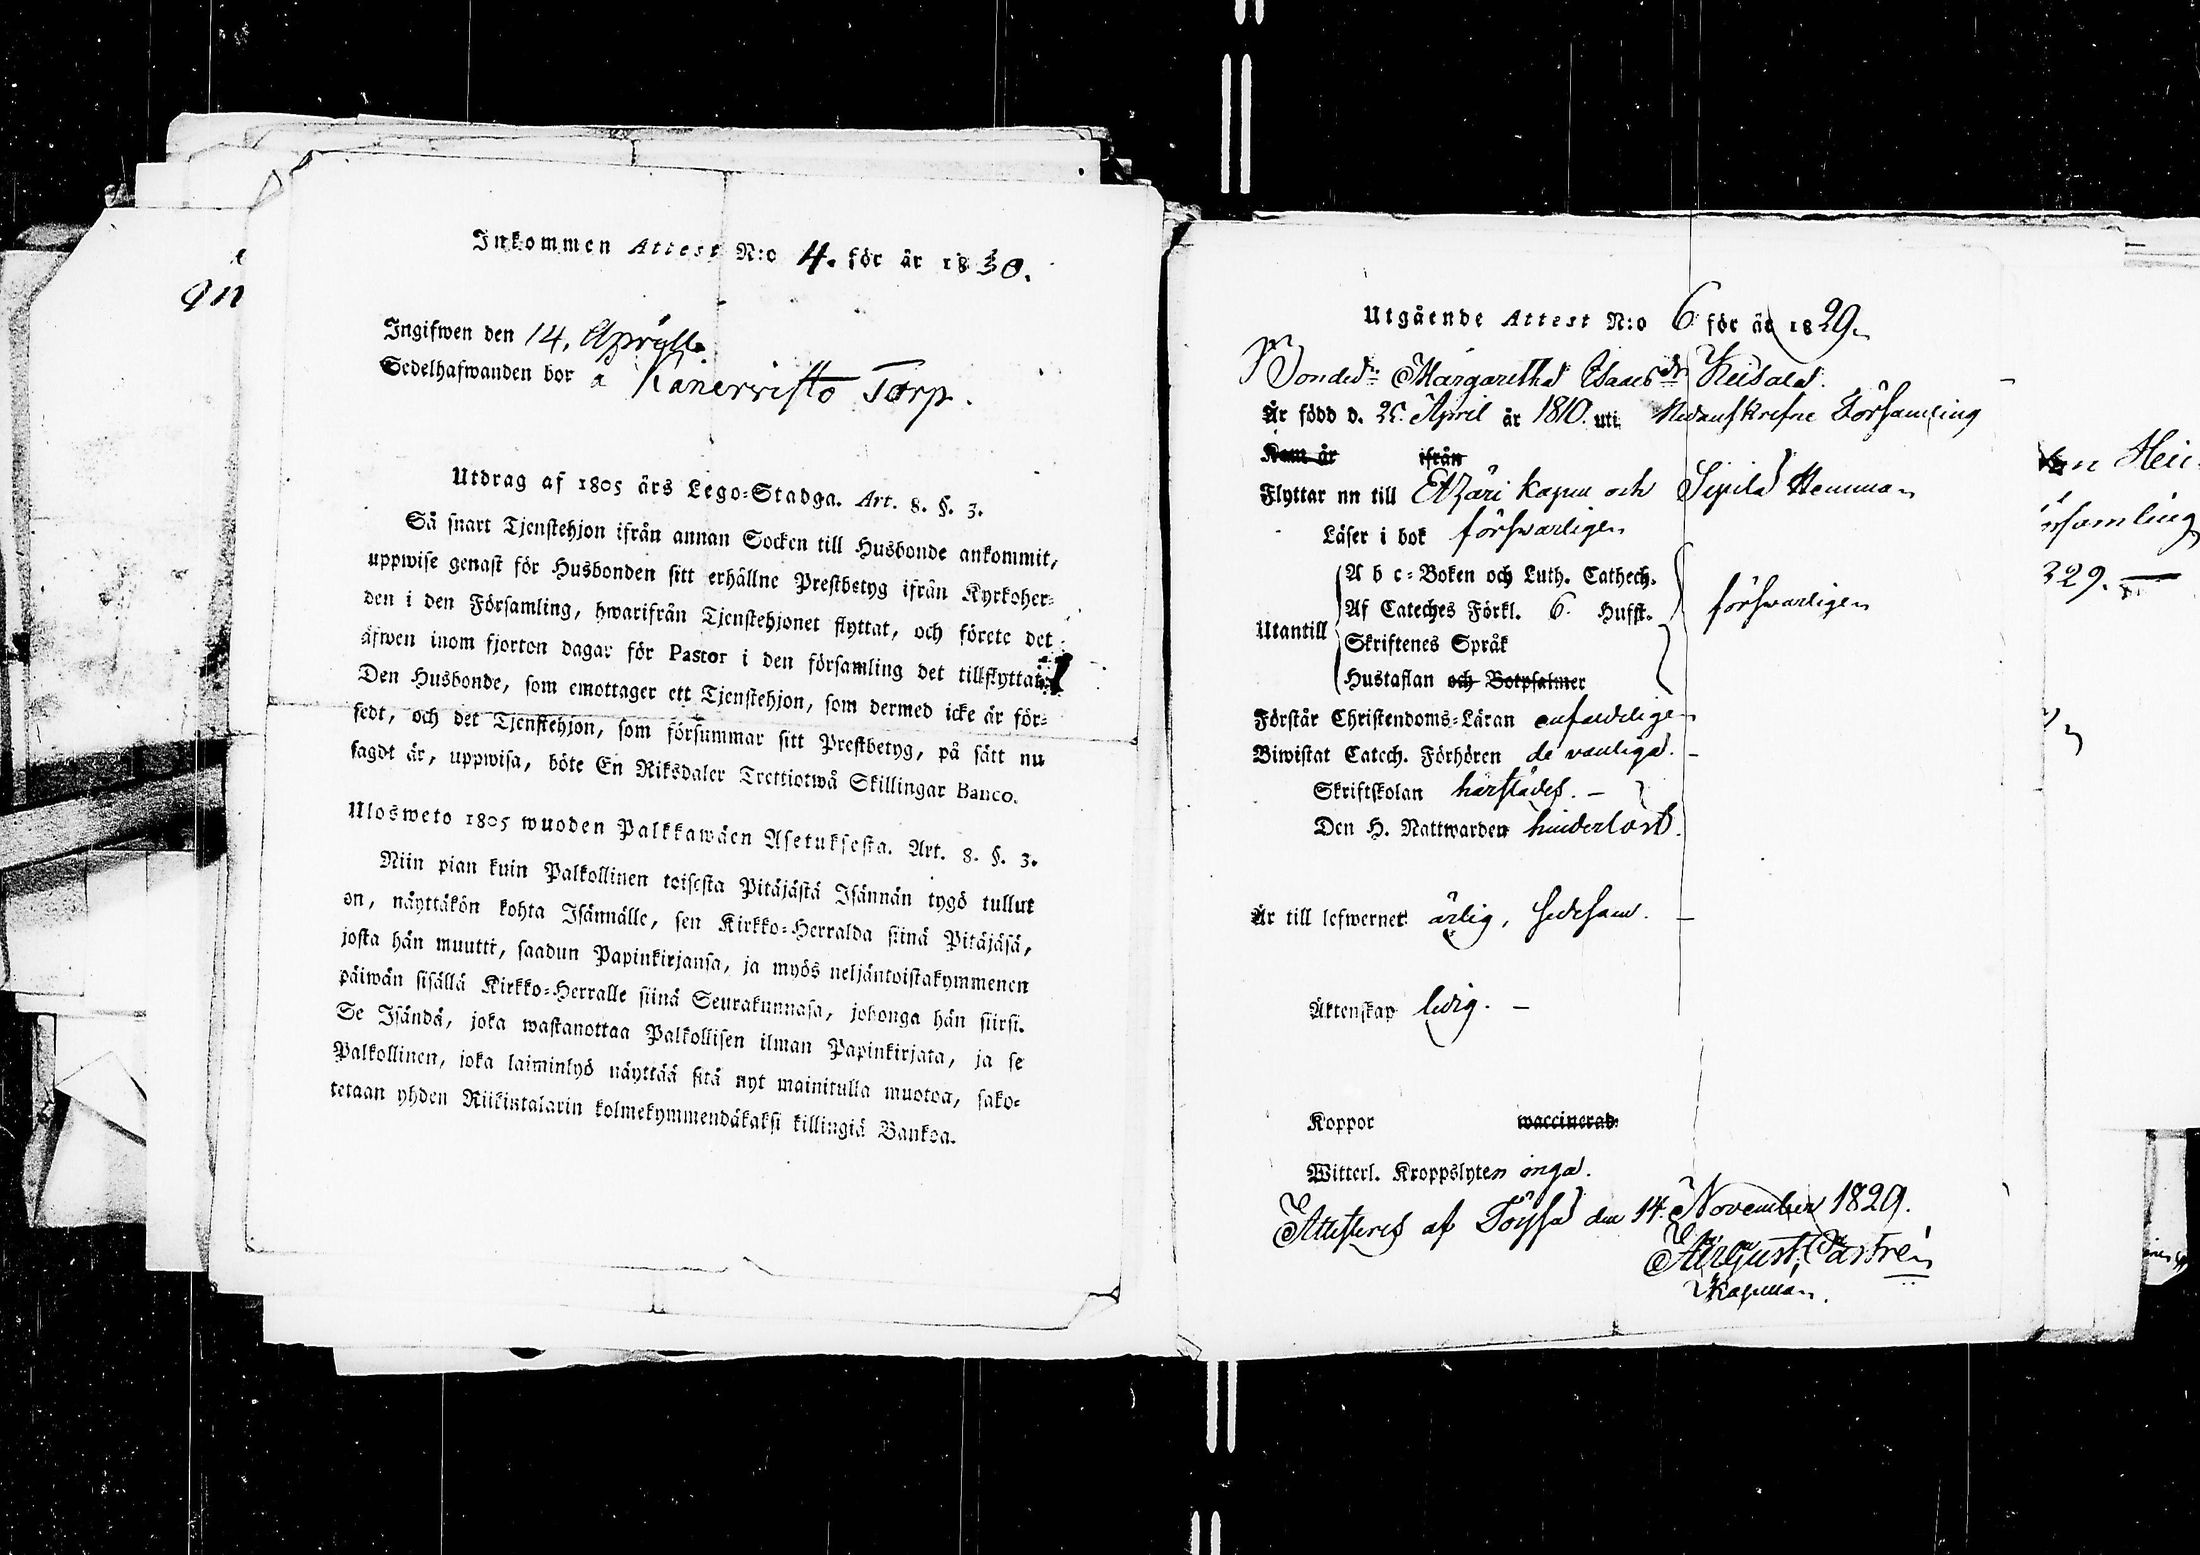 Inkommen Attest N:o 4. för år 1830.
Ingifwen den 14. Aprill.
Sedelhafwanden bor å Kanerwisto Torp.
Utdrag af 1805 års Lego-Stadga. Art. 8. §. 3.
Så snart Tjenstehjon ifrån annan Socken till Husbonde ankommit,
uppwise genast för Husbonden sitt erhållne Prestbetyg ifrån Kyrkoher-
den i den Församling, hwarifrån Tjenstehjonet flyttat, och förete det
äfwen inom fjorton dagar för Pastor i den församling det tillflyttat.
Den Husbonde, som emottager ett Tjenstehjon, som dermed icke är för-
sedt, och det Tjenstehjon, som försummar sitt Prestbetyg, på sätt nu
sagdt är, uppwisa, böte En Riksdaler Trettiotwå Skillingar Banco.
Ulosweto 1805 wuoden Palkkawäen Asetuksesta. Art. 8. §. 3.
Niin pian kuin Palkollinen toisesta Pitäjästä Isännän tygö tullut
on, näyttäkön kohta Isännälle, sen Kirkko-Herralda siinä Pitäjäsä,
josta hän muutti, saadun Papinkirjansa, ja myös neljäntoistakymmenen
päiwän sisällä Kirkko-Herralle siinä Seurakunnasa, johonga hän siirsi.
Se Isändä, joka wastanottaa Palkollisen ilman Papinkirjata, ja se
Palkollinen, joka laiminlyö näyttää sitä nyt mainitulla muotoa, sako-
tetaan yhden Riikintalarin kolmekymmendäkaksi killingiä Bankoa.
Utgående Attest N:o 6 för år 1829.
Bondedr Margaretha Isaacsdr Keisala.
Är född d. 25. April år 1810. uti Nedanskrefne Församling
Kom år ifrån
Flyttar nu till Etzäri Kapell och Sipilä Hemman
Läser i bok förswarligen
Utantill
A b c-Boken och Luth. Cathech.
Af Cateches Förkl. 6. Hufst. förswarligen
Skriftenes Språk
Hustaflan och Botpsalmer
Förstår Christendoms-Läran enfaldeligen
Biwistat Catech. Förhören de vanliga. –
Skriftskolan härstädes. –
Den H. Nattwarden hinderlöst.
Är till lefwernet ärlig, sedesam. –
Äktenskap ledig. –
Koppor waccinerad.
Witterl. Kroppslyten inga.
Attesteres af Töysä den 14. November 1829.
August Castrén
Kapellan.
329.